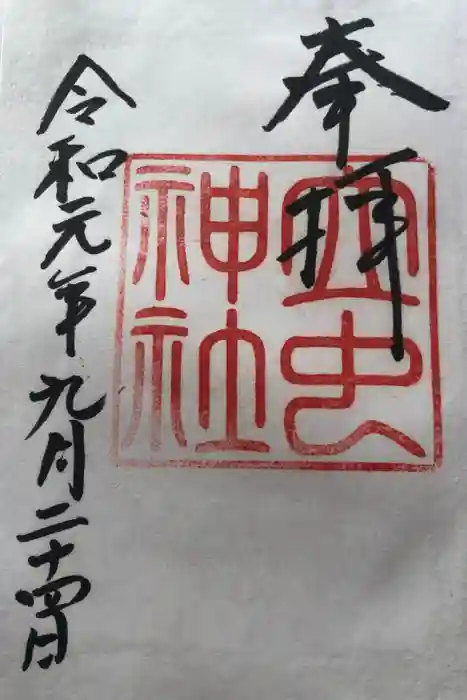 奉拝
神社
令和元年九月二十四日